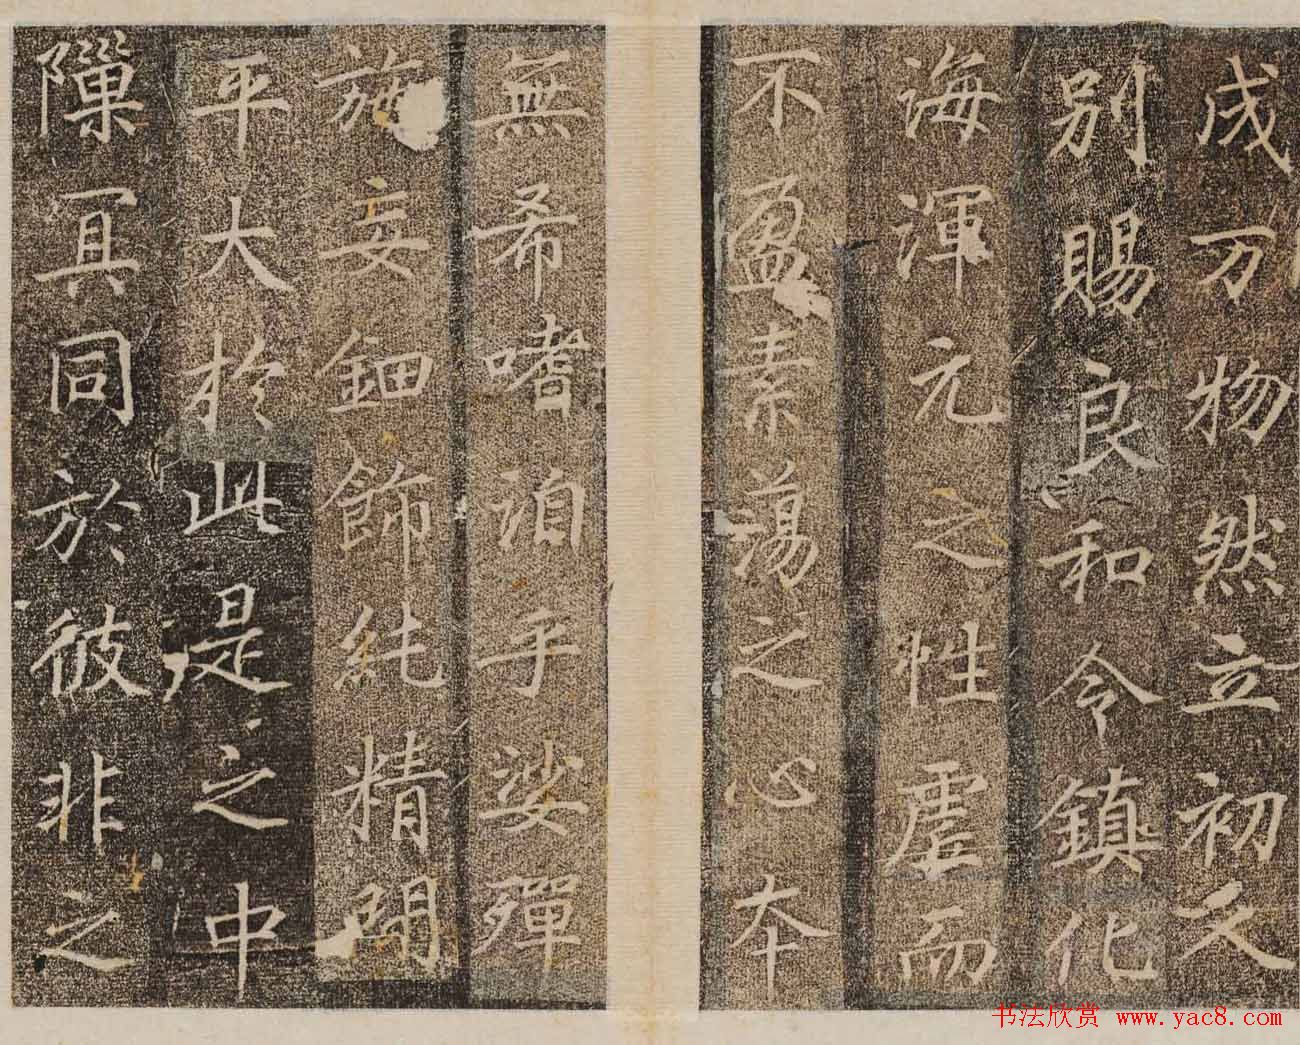 成万物然立初
别賜良和令鎮化
海渾元之性虛而
不盈素蕩之心本
無希嗜泊乎娑殫
施妄鈿飾純精
平大於此是之中
冥同於彼非之
书法欣赏 www.yac8.com